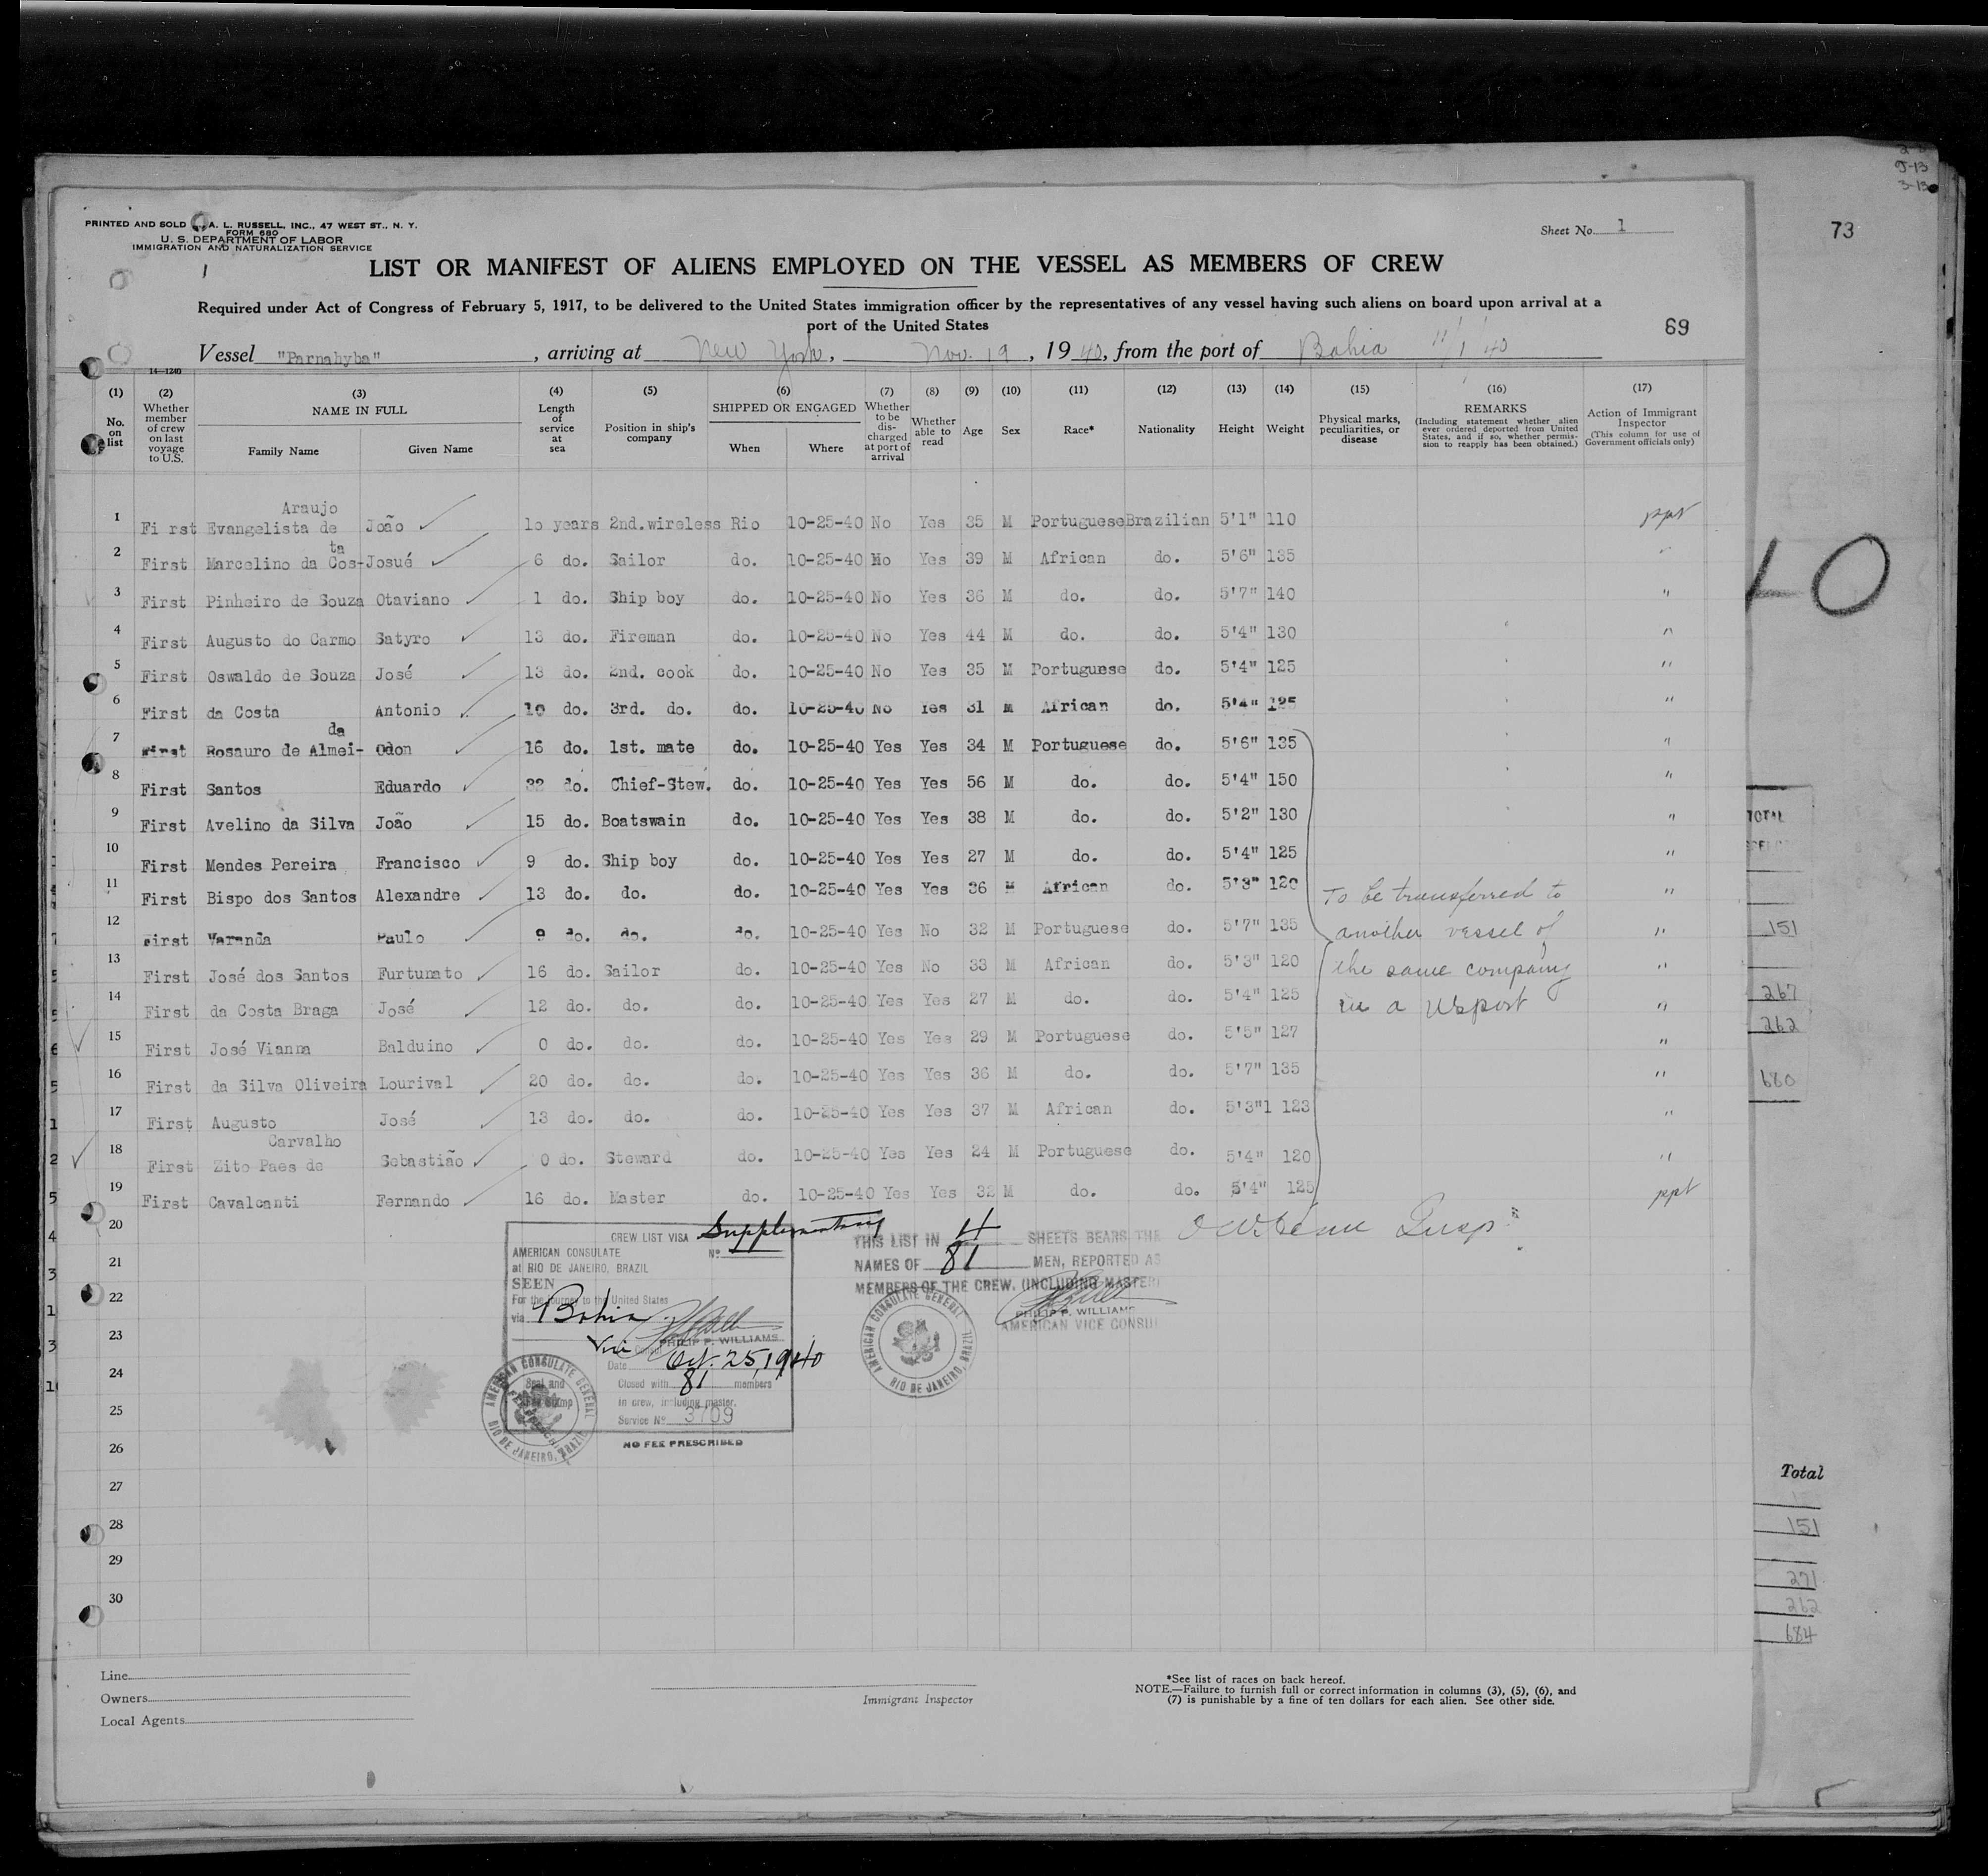 73
PRINTED AND SOLD A. L. RUSSELL, INC., 47 WEST ST., N. Y.
FORM 680
U. S. DEPARTMENT OF LABOR
IMMIGRATION AND NATURALIZATION SERVICE
Sheet No. 1
LIST OR MANIFEST OF ALIENS EMPLOYED ON THE VESSEL AS MEMBERS OF CREW
Required under Act of Congress of February 5, 1917, to be delivered to the United States immigration officer by the representatives of any vessel having such aliens on board upon arrival at a
port of the United States
69
Vessel "Parnahyba", arriving at New York, Nov. 19, 1940, from the port of Bahia 11/1/40
14-1240
(1) (2) (3) (4) (5) (6) (7) (8) (9) (10) (11) (12) (13) (14) (15) (16) (17)
No. on list
Whether member of crew on last voyage to U.S.
NAME IN FULL
Family Name Given Name
Length of service at sea
Position in ship's company
SHIPPED OR ENGAGED
When Where
Whether to be discharged at port of arrival
Whether able to read
Age Sex Race* Nationality Height Weight
Physical marks, peculiarities, or disease
REMARKS
(Including statement whether alien ever ordered deported from United States, and if so, whether permission to reapply has been obtained.)
Action of Immigrant Inspector
(This column for use of Government officials only)
Araujo
1 Fi rst Evangelista de João 10 years 2nd.wireless Rio 10-25-40 No Yes 35 M Portuguese Brazilian 5'1" 110 ppt
ta
2 First Marcelino da Cos- Josué 6 do. Sailor do. 10-25-40 No Yes 39 M African do. 5'6" 135 "
3 First Pinheiro de Souza Otaviano 1 do. Ship boy do. 10-25-40 No Yes 36 M do. do. 5'7" 140 "
4 First Augusto do Carmo Satyro 13 do. Fireman do. 10-25-40 No Yes 44 M do. do. 5'4" 130 "
5 First Oswaldo de Souza José 13 do. 2nd. cook do. 10-25-40 No Yes 35 M Portuguese do. 5'4" 125 "
6 First da Costa Antonio 10 do. 3rd. do. do. 10-25-40 No Yes 31 M African do. 5'4" 125 "
da
7 First Rosauro de Almei- Odon 16 do. 1st. mate do. 10-25-40 Yes Yes 34 M Portuguese do. 5'6" 135 "
8 First Santos Eduardo 32 do. Chief-Stew. do. 10-25-40 Yes Yes 56 M do. do. 5'4" 150 "
9 First Avelino da Silva João 15 do. Boatswain do. 10-25-40 Yes Yes 38 M do. do. 5'2" 130 "
10 First Mendes Pereira Francisco 9 do. Ship boy do. 10-25-40 Yes Yes 27 M do. do. 5'4" 125 "
11 First Bispo dos Santos Alexandre 13 do. do. do. 10-25-40 Yes Yes 36 M African do. 5'3" 120 "
12 First Varanda Paulo 9 do. do. do. 10-25-40 Yes No 32 M Portuguese do. 5'7" 135 "
13 First José dos Santos Furtunato 16 do. Sailor do. 10-25-40 Yes No 33 M African do. 5'3" 120 "
14 First da Costa Braga José 12 do. do. do. 10-25-40 Yes Yes 27 M do. do. 5'4" 125 "
15 First José Vianna Balduino 0 do. do. do. 10-25-40 Yes Yes 29 M Portuguese do. 5'5" 127 "
16 First da Silva Oliveira Lourival 20 do. do. do. 10-25-40 Yes Yes 36 M do. do. 5'7" 135 "
17 First Augusto José 13 do. do. do. 10-25-40 Yes Yes 37 M African do. 5'3"1 123 "
Carvalho
18 First Zito Paes de Sebastião 0 do. Steward do. 10-25-40 Yes Yes 24 M Portuguese do. 5'4" 120 "
19 First Cavalcanti Fernando 16 do. Master do. 10-25-40 Yes Yes 32 M do. do. 5'4" 125 ppt
To be transferred to
another vessel of
the same company
in a US port
20
21
22
23
24
25
26
27
28
29
30
CREW LIST VISA Supplementary
No.
AMERICAN CONSULATE
at RIO DE JANEIRO, BRAZIL
SEEN
For the journey to the United States
via Bahia
Vice Consul PHILIP P. WILLIAMS
Date Oct. 25, 1940
Closed with 81 members
in crew, including master.
Service No. 3709
Seal and
NO FEE PRESCRIBED
AMERICAN CONSULATE GENERAL
RIO DE JANEIRO, BRAZIL
THIS LIST IN 4 SHEETS BEARS THE
NAMES OF 81 MEN, REPORTED AS
MEMBERS OF THE CREW, (INCLUDING MASTER)
PHILIP P. WILLIAMS
AMERICAN VICE CONSUL
AMERICAN CONSULATE GENERAL
RIO DE JANEIRO, BRAZIL
Insp.
Line
Owners
Local Agents
Immigrant Inspector
*See list of races on back hereof.
NOTE.—Failure to furnish full or correct information in columns (3), (5), (6), and
(7) is punishable by a fine of ten dollars for each alien. See other side.
TOTAL
151
267
262
680
Total
151
271
262
684